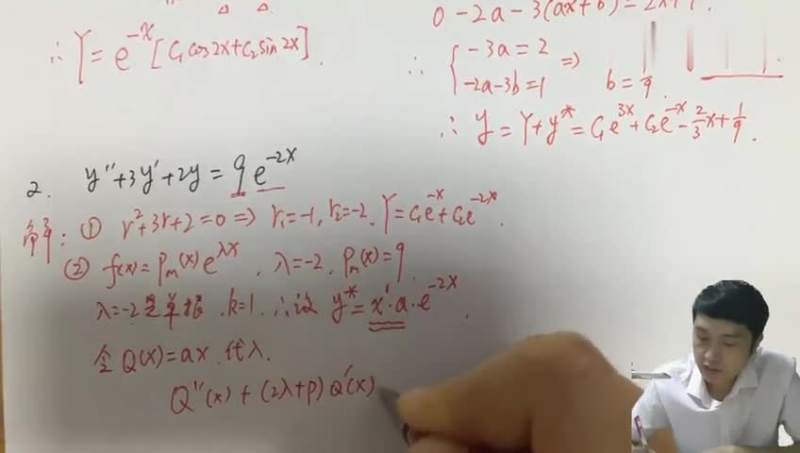 ∴ Y = e^{-x} [C₁cos2x + C₂sin2x]
0 - 2a - 3(ax+b) = 2x+1.
∴ { -3a = 2
-2a-3b = 1 ⇒ b = 1/9.
∴ y = Y + y* = C₁e^{3x} + C₂e^{-x} - 2/3 x + 1/9.
2. y'' + 3y' + 2y = 9e^{-2x}
解: ① r² + 3r + 2 = 0 ⇒ r₁ = -1, r₂ = -2. Y = C₁e^{-x} + C₂e^{-2x}.
② f(x) = Pₘ(x)e^{λx}, λ = -2, Pₘ(x) = 9
λ = -2 是单根. k = 1. ∴ 设 y* = x¹·a·e^{-2x}.
令 Q(x) = ax 代入.
Q''(x) + (2λ+p)Q'(x)